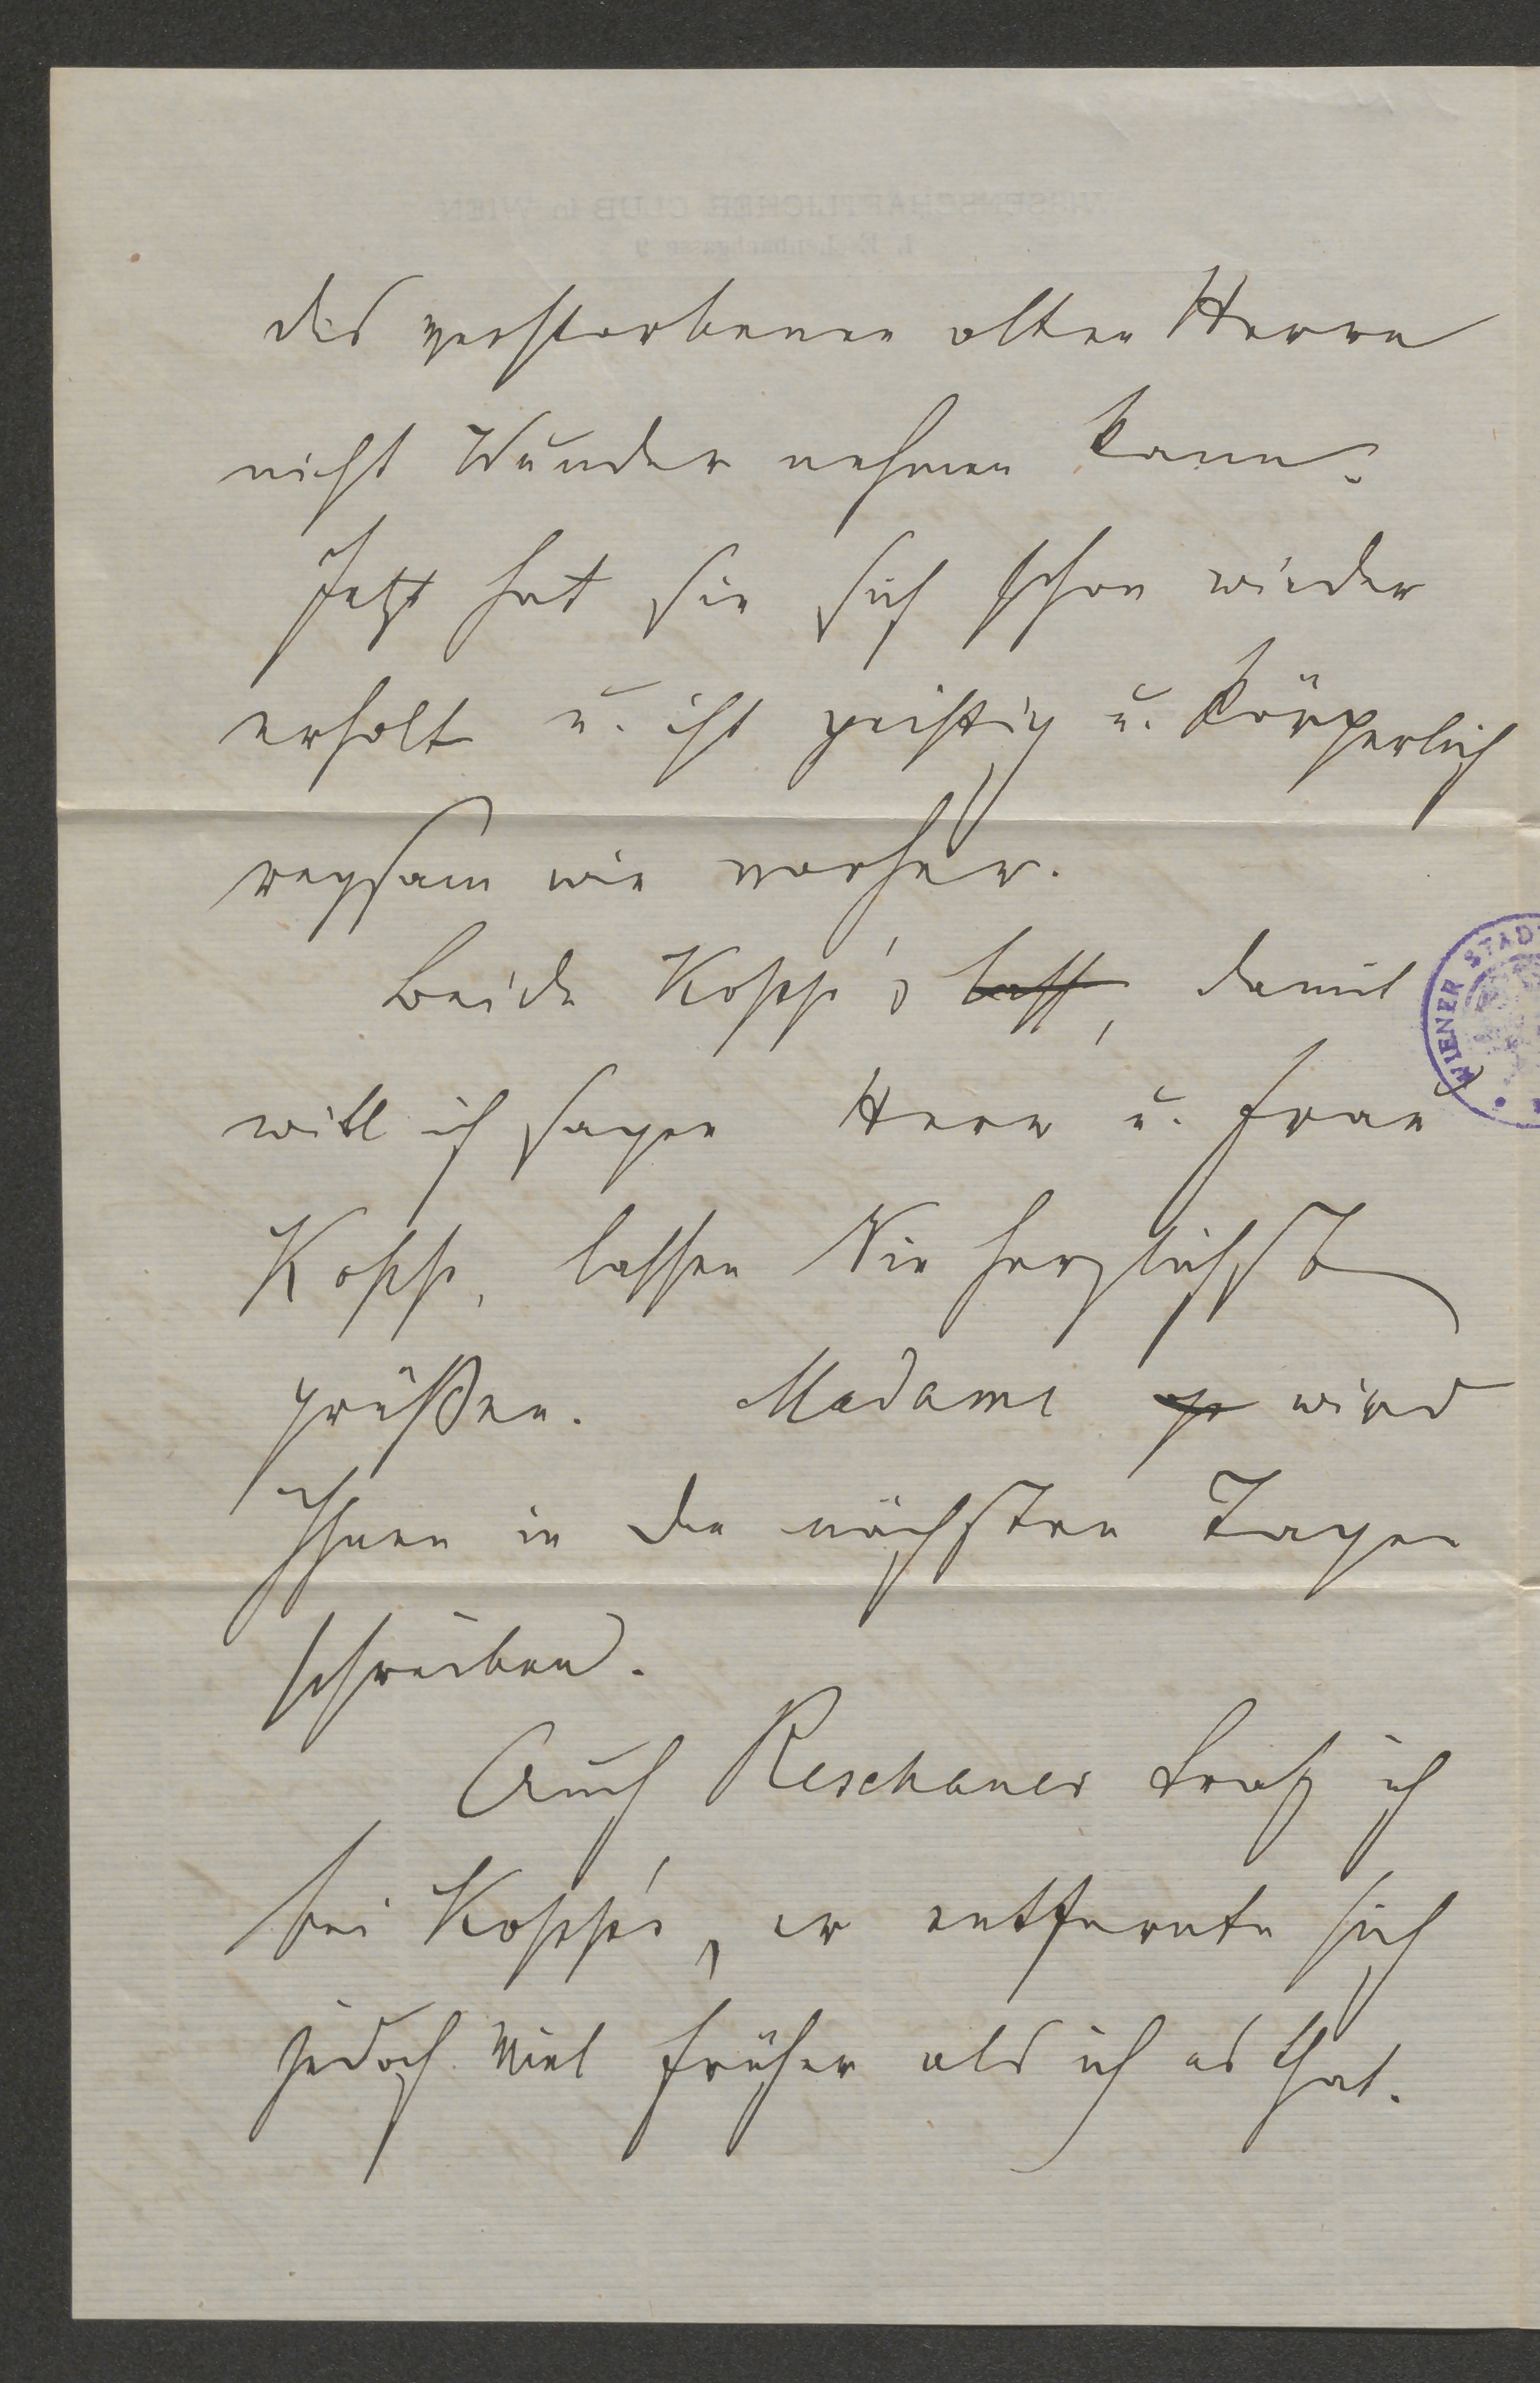 des verstorbenen alten Herrn
nicht Wunder nehmen kann.
Jetzt hat sie sich schon wieder
erholt u. ist geistig u. körperlich
regsam wie vorher.
Beide Kopp's lass, damit
will ich sagen Herr u. Frau
Kopp, lassen Sie herzlichst
grüßen. Madame wird
Ihnen in den nächsten Tagen
schreiben.
Auch Reschauer traf ich
bei Kopp's, er entfernte sich
jedoch viel früher als ich es that.
WIENER STAD